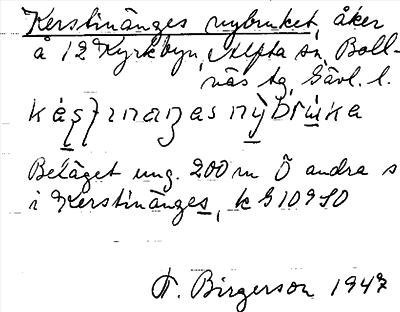 Kerstinänges nybruket, åker
å 12 Kyrkbyn, Alfta sn, Boll-
näs tg, Gävl. l.
Beläget ung. 200 m Ö andra s
i Kerstinänges, k G 10980
F. Birgerson 1947